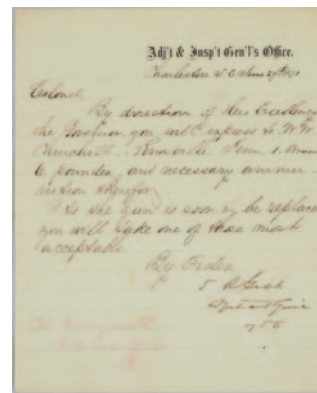 Adj't & Insp't Gen'l's Office.
Charleston S. C. June 27th
Colonel
By direction of His Excellency
the Governor you will express to W W
Churchill Knoxville Tenn. 1.
6 pounder and necessary ammu-
nition therefor
As the gun is soon to be replaced
you will take one of those most
acceptable
By Order